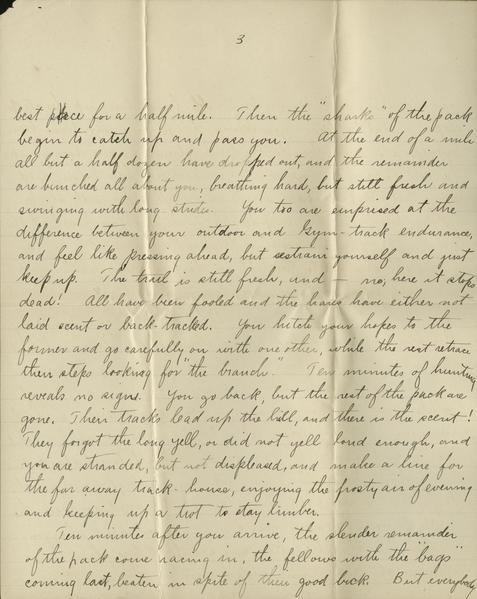 3
best place for a half mile. Then the "sharks" of the pack
begin to catch up and pass you. At the end of a mile
all but a half dozen have dropped out, and the remainder
are bunched all about you, breathing hard, but still fresh and
swinging with long strides. You too are surprised at the
difference between your outdoor and Gym-track endurance,
and feel like pressing ahead, but restrain yourself and just
keep up. The trail is still fresh, and — no, here it stops
dead! All have been fooled and the hares have either not
laid scent or back-tracked. You hitch your hopes to the
former and go carefully on with one other, while the rest retrace
their steps looking for "the branch. Ten minutes of hunting
reveals no signs. You go back, but the rest of the pack are
gone. Their tracks lead up the hill, and there is the scent!
They forgot the long yell, or did not yell loud enough, and
you are stranded, but not displeased, and make a line for
the far away track-house, enjoying the frosty air of evening
and keeping up a trot to stay limber.
Ten minutes after you arrive, the slender remainder
of the pack come racing in, the fellows with the "bags"
coming last, beaten in spite of their good luck. But everybody